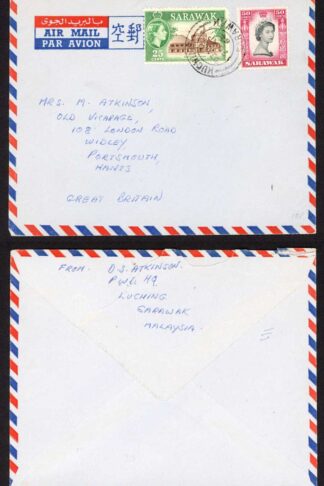 بالبريد الجوى
AIR MAIL
PAR AVION
空郵
SARAWAK
25
CENTS
50
50
SARAWAK
MRS. M. ATKINSON,
OLD VICARAGE,
108 LONDON ROAD
WIDLEY
PORTSMOUTH,
HANTS
GREAT BRITAIN
FROM. D.S. ATKINSON.
P.W.D. HQ
LUCHING
SARAWAK
MALAYSIA.